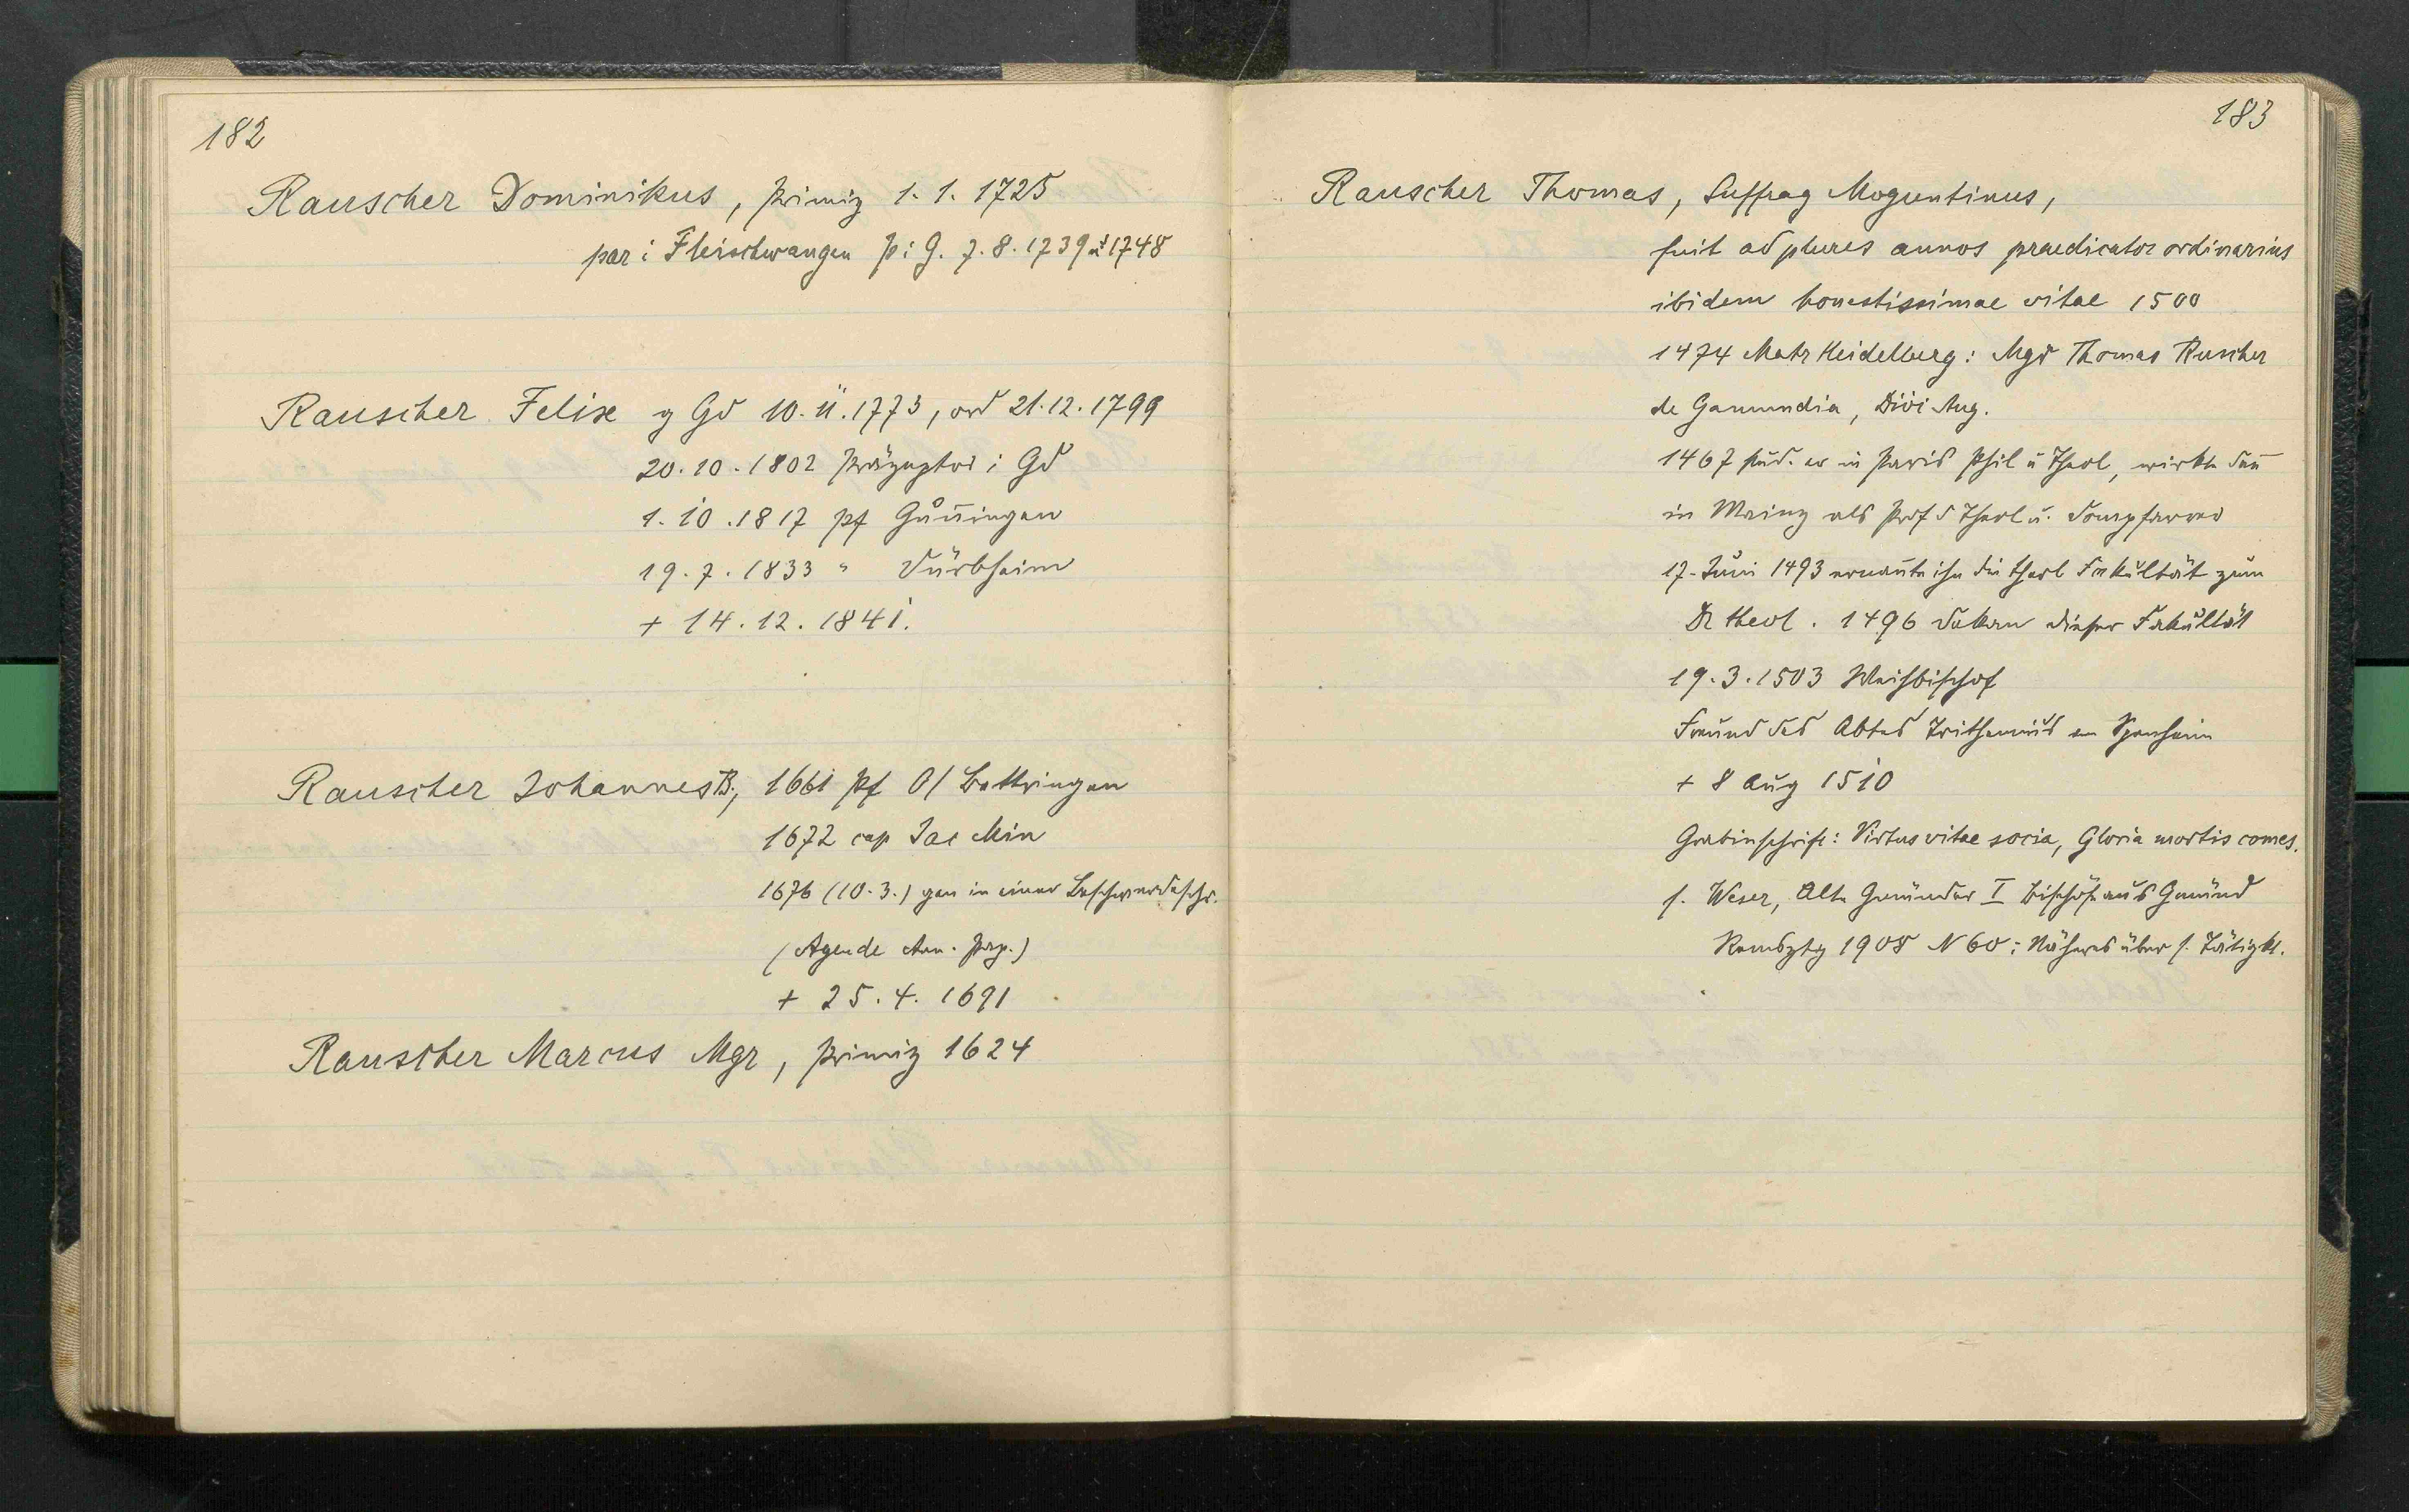 182
Rauscher Dominikus, Primiz 1. 1. 1725
par i Fleischwangen P: G. 7. 8. 1739 u 1748
Rauscher Felix g Gd 10. 11. 1773, ord 21. 12. 1799
20. 10. 1802 Präzeptor i Gd
1. 10. 1817 Pf Gunningen
19. 7. 1833 " Dürbheim
+ 14. 12. 1841.
Rauscher Johannes B., 1661 Pf O/Bettringen
1672 cap Jac Min
1676 (10. 3.) gen in einer Beschwerdeschr.
(Agende Pap.)
+ 25. 4. 1691
Rauscher Marcus Mgr, Primiz 1624
183
Rauscher Thomas, Suffrag Moguntinus,
fuit ad plures annos praedicator ordinarius
ibidem honestissimae vitae 1500
1474 Matr Heidelberg: Mgr Thomas Ruscher
de Gamundia, Divi Aug.
1467 stud. er in Paris Phil u Theol, wirkte dan̄
in Mainz als Prof d Theol u. Dompfarrer
17. Juni 1493 ernan̄te ihn die theol Fakultät zum
Dr theol. 1496 Dekan dieser Fakultät
19. 3. 1503 Weihbischof
Freund des Abtes Trithemius Sponheim
+ 8 Aug 1510
Grabinschrift: Virtus vitae socia, Gloria mortis comes.
s. Weser, Alte Gmünder I Bischöfe aus Gmünd
Remsztg 1908 N 60; Näheres über s. Tätigkt.